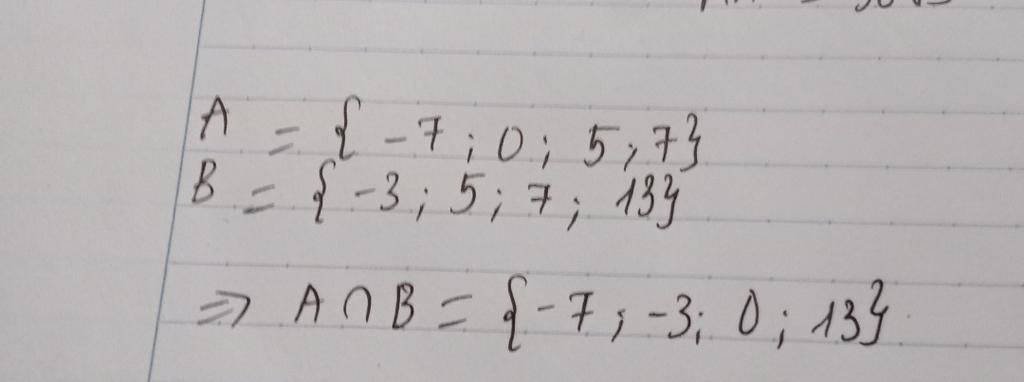 A = { -7 ; 0 ; 5 ; 7}
B = { -3 ; 5 ; 7 ; 13}
=> A ∩ B = { -7 ; -3 ; 0 ; 13}